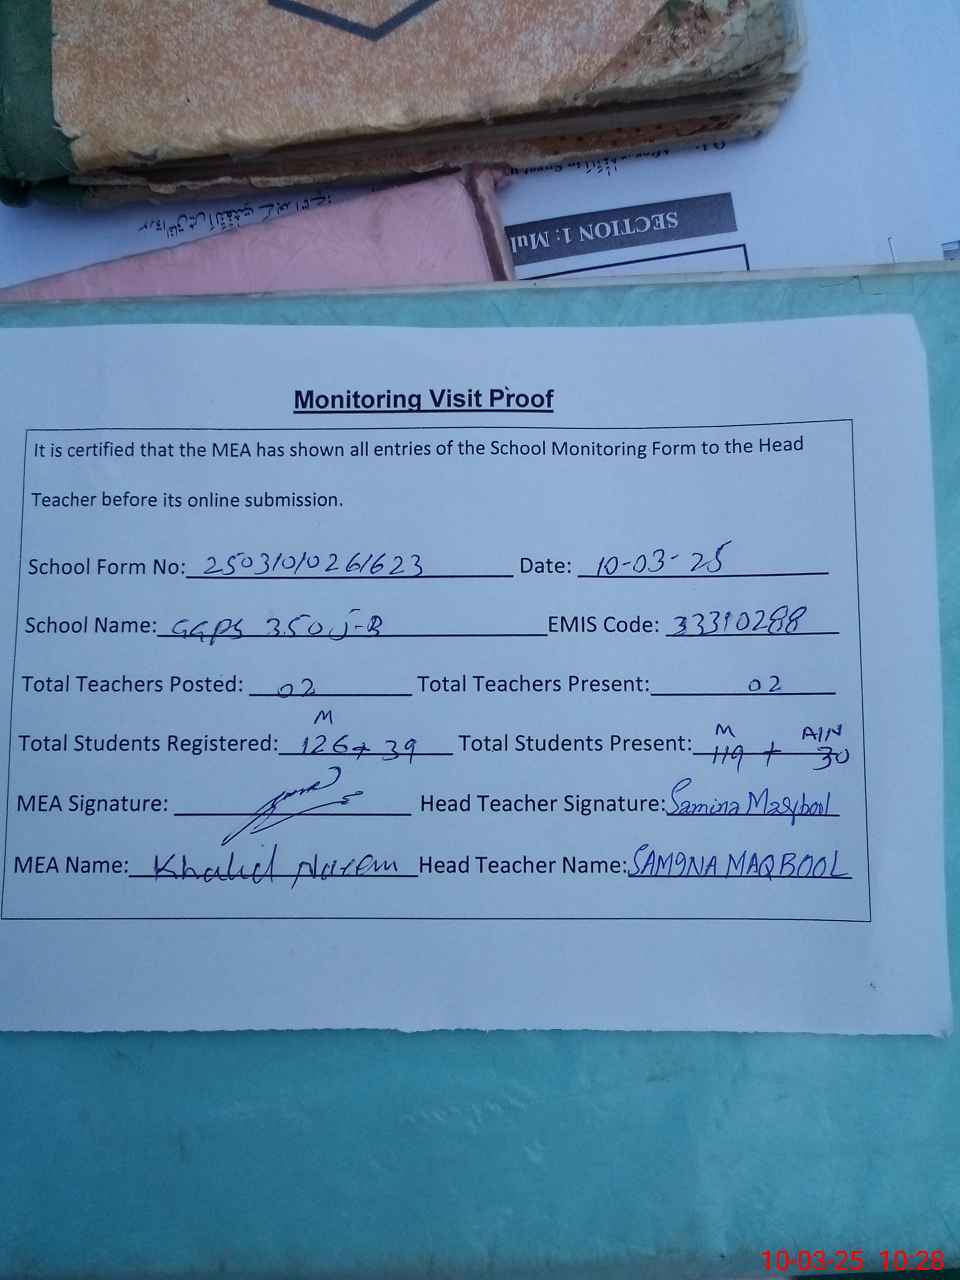 SECTION 1: Mul
Monitoring Visit Proof
It is certified that the MEA has shown all entries of the School Monitoring Form to the Head
Teacher before its online submission.
School Form No: 25031010261623 Date: 10-03-25
School Name: GGPS 350 J-B EMIS Code: 33310288
Total Teachers Posted: 02 Total Teachers Present: 02
M M A/N
Total Students Registered: 126+39 Total Students Present: 119 + 30
MEA Signature: Head Teacher Signature: Samina Maqbool
MEA Name: Khalid Naeem Head Teacher Name: SAMINA MAQBOOL
10-03-25 10:28